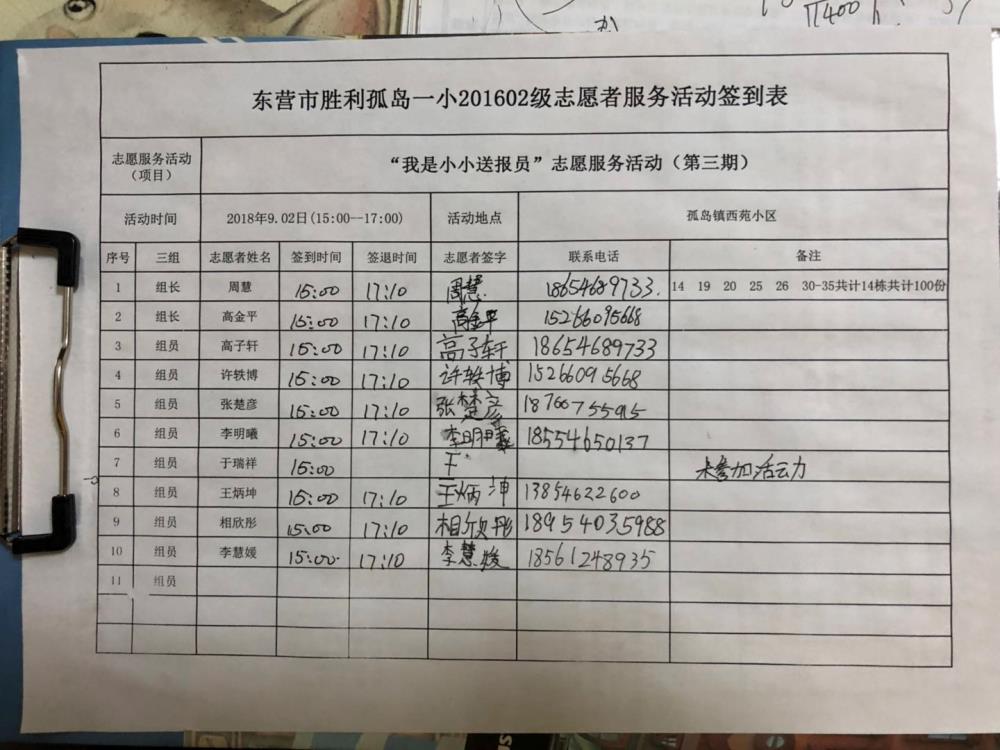 π400
东营市胜利孤岛一小201602级志愿者服务活动签到表
志愿服务活动（项目） “我是小小送报员”志愿服务活动（第三期）
活动时间 2018年9.02日(15:00--17:00) 活动地点 孤岛镇西苑小区
序号 三组 志愿者姓名 签到时间 签退时间 志愿者签字 联系电话 备注
1 组长 周慧 15:00 17:10 周慧 18654689733. 14 19 20 25 26 30-35共计14栋共计100份
2 组长 高金平 15:00 17:10 高金平 15266095668
3 组员 高子轩 15:00 17:10 高子轩 18654689733
4 组员 许轶博 15:00 17:10 许轶博 15266095668
5 组员 张楚彦 15:00 17:10 张楚彦 18760755915
6 组员 李明曦 15:00 17:10 李明曦 18554650137
7 组员 于瑞祥 15:00 王 未参加活动
8 组员 王炳坤 15:00 17:10 王炳坤 13854622600
9 组员 相欣彤 15:00 17:10 相欣彤 18954035988
10 组员 李慧媛 15:00 17:10 李慧媛 18561248935
11 组员